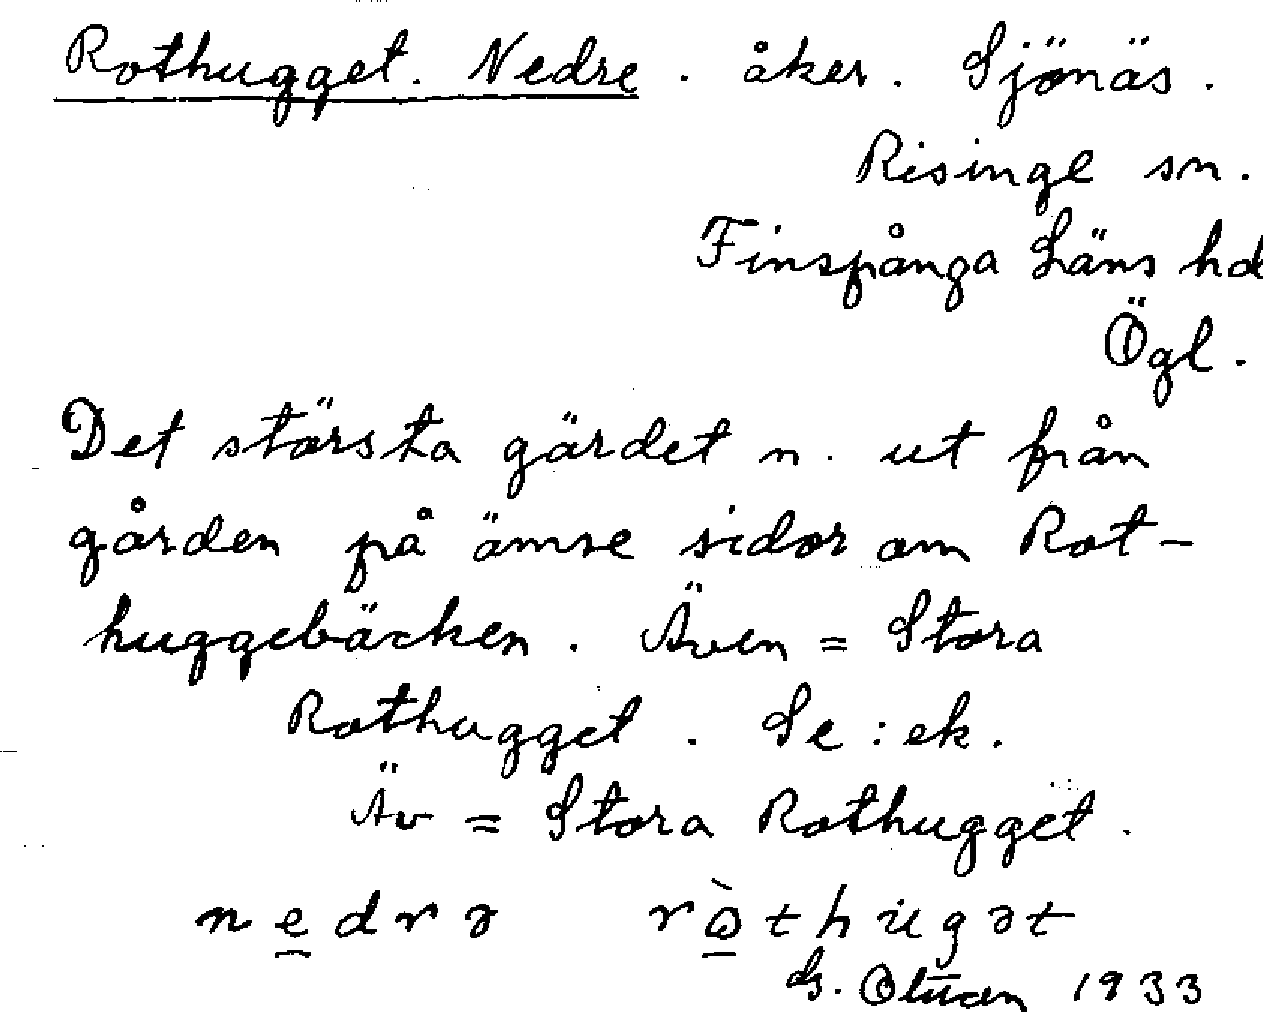 Rothugget. Nedre. åker. Sjönäs.
Risinge sn.
Finspånga Läns hd
Ögl.
Det största gärdet n. ut från
gården på ömse sidor om Rot-
huggebäcken. Även = Stora
Rothugget. Se : ek.
Äv = Stora Rothugget.
nedrə rò̱thugət
G. 1933